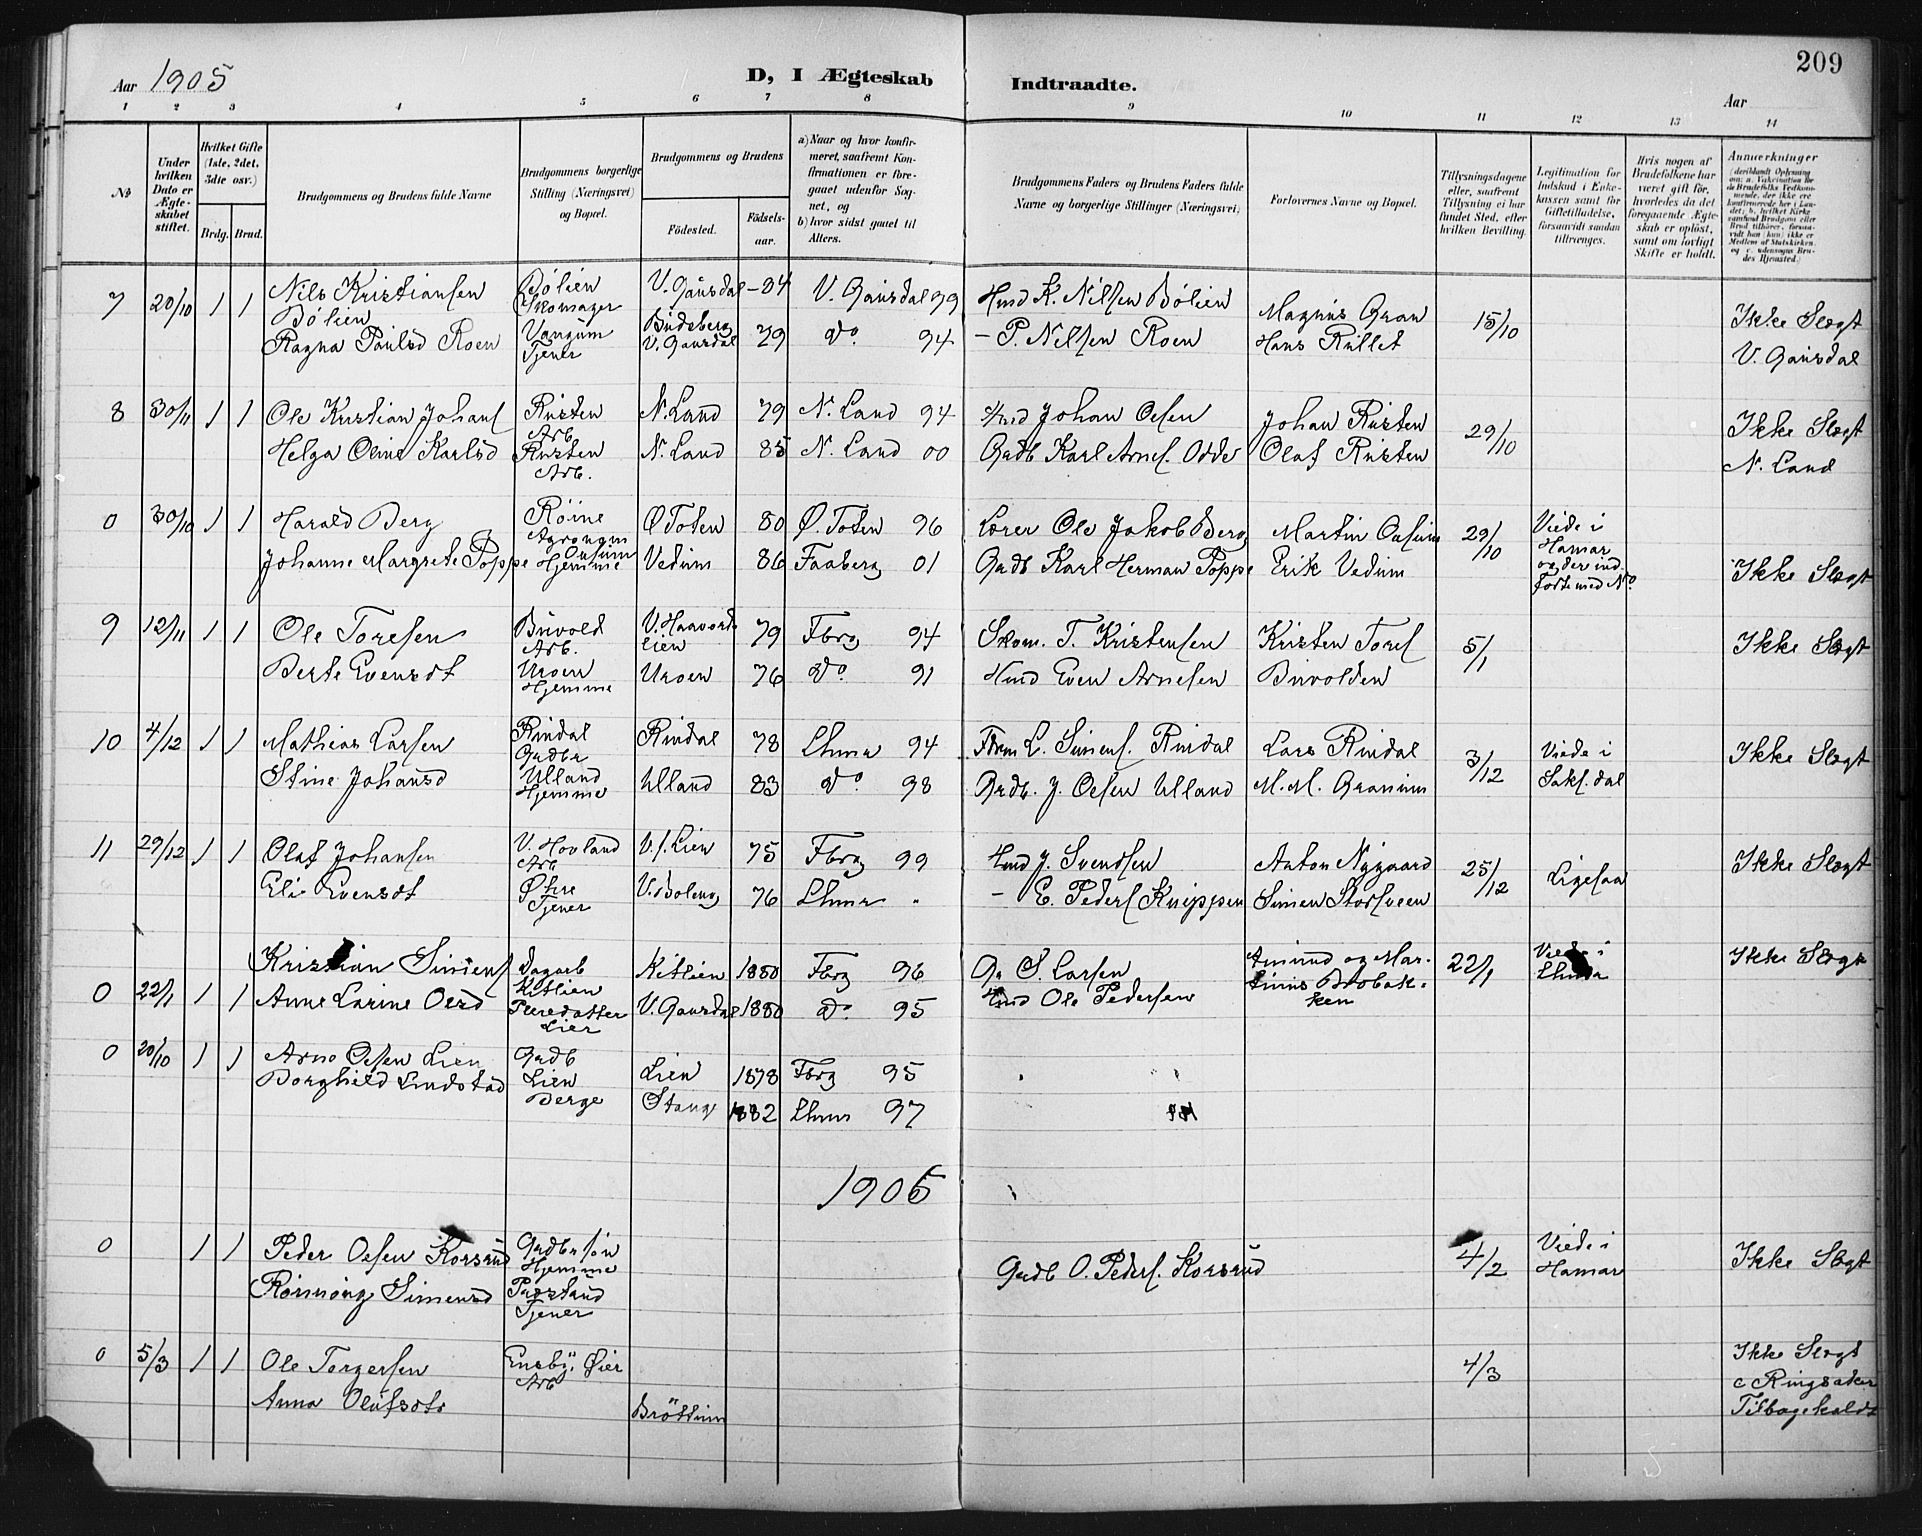 209
Aar 1905
D, I Ægteskab Indtraadte.
Aar
1 2 3 4 5 6 7 8 9 10 11 12 13 14
No
Under hvilken Dato er Ægteskabet stiftet.
Hvilket Gifte (1ste, 2det, 3die osv.)
Brdg. Brud.
Brudgommens og Brudens fulde Navne
Brudgommens borgerlige Stilling (Næringsvei) og Bopæl.
Brudgommens og Brudens
Födested. Födselsaar.
a) Naar og hvor konfirmeret, saafremt Konfirmationen er foregaaet udenfor Sognet, og
b) hvor sidst gaaet til Alters.
Brudgommens Faders og Brudens Faders fulde Navne og borgerlige Stillinger (Næringsvei)
Forlovernes Navne og Bopæl.
Tillysningsdagene eller, saafremt Tillysning ei har fundet Sted, efter hvilken Bevilling.
Legitimation for Indskud i Enkekassen samt for Giftetilladelse, forsaavidt saadan tiltrænges.
Hvis nogen af Brudefolkene har været gift før, hvorledes da det foregaaende Ægteskab er oplöst, samt om lovligt Skifte er holdt.
Anmærkninger
7 20/10 1 1 Nils Kristiansen Bølien Bølien Skomager V. Gausdal 84 V. Gausdal 99 Hmd K. Nilsen Bølien Magnus Gran 15/10 Ikke Slægt
Ragna Paulsd Roen Vangum Tjener V. Gausdal 79 do 94 - P. Nilsen Roen Hans Rullet V. Gausdal
8 30/11 1 1 Ole Kristian Johans Rusten Arb N. Land 79 N. Land 94 Hmd Johan Olsen Johan Rusten 29/10 Ikke Slægt
Helga Oline Karlsd Rusten Arb. N. Land 85 N. Land 00 Gadb Karl Arnes. Odde Olaf Rusten N. Land
0 30/10 1 1 Harald Berg Røine Agronom Ø Toten 80 Ø. Toten 96 Lærer Ole Jakob Berg Martin 29/10 Viede i Hamar
Johanne Margrete Poppe Hjemme Vedum 86 Faaberg 01 Gadb Karl Herman Poppe Erik Vedum Ikke Slægt
9 12/11 1 1 Ole Toresen Buvold Arb. V. Haavards lien 79 Fbrg 94 Skom. T. Kristensen Kristen Tores 5/1 Ikke Slægt
Berte Evensdt Uroen Hjemme Uroen 76 do 91 Hmd Even Arnesen Buvolden
10 4/12 1 1 Mathias Larsen Rindal Gadbr Rindal 78 Lhmr 94 L. Simens. Rindal Lars Rindal 3/12 Viede i Saks.dal Ikke Slægt
Stine Johansd Ulland Hjemme Ulland 83 do 98 Gadb. J. Olsen Ulland M. M. Granum
11 29/12 1 1 Olaf Johansen V. Hovland Arb V. S. Lien 75 Fbrg 99 Hmd J. Svendsen Anton Nygaard 25/12 Ligesaa Ikke Slægt
Eli Evensdt Øhre Tjener 76 Lhmr - E. Peders Knippen Simen Storsveen
0 22/1 1 1 Kristian Simens Dagarb Kitlien Kitlien 1880 Fbrg 96 Ga S. Larsen Amund og Martinus Brobakken 22/1 Viede i Lhmr Ikke Slægt
Anne Larine Olsd Lier V. Gausdal 1880 do 95 Hmd Ole Pedersen
0 20/10 1 1 Arne Olsen Lien Gadb Lien Lien 1878 Fbrg 95
Borghild Lindstad Berge Stange 1882 Lhmr 97
1906
0 1 1 Peder Olsen Korsrud Gadbr søn Hjemme Gadb O. Peders. Korsrud 4/2 Viede i Hamar Ikke Slægt
Rønnøug Simensd Tjener
0 5/3 1 1 Ole Torgersen Ensby, Øier Arb 4/3 Ikke Slægt
Anna Olufsdt Brøttum c Ringsaker Tilbagekaldt